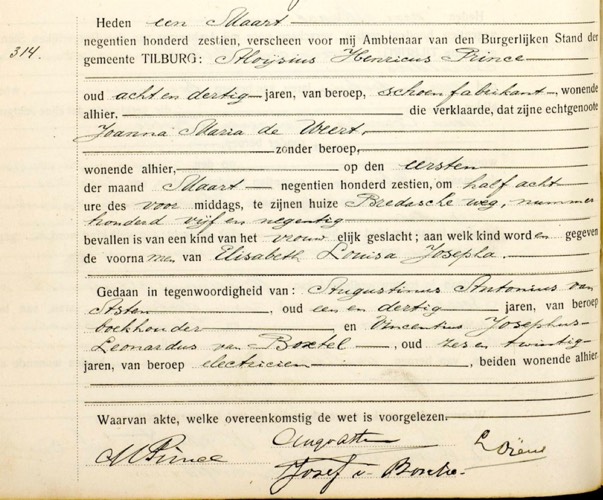 Heden een Maart
negentien honderd zestien, verscheen voor mij Ambtenaar van den Burgerlijken Stand der
314.
gemeente TILBURG: Aloijsius Henricus Prince
oud acht en dertig jaren, van beroep, schoenfabrikant, wonende
alhier, die verklaarde, dat zijne echtgenoote
Joanna Maria de Weert,
zonder beroep,
wonende alhier, op den eersten
der maand Maart negentien honderd zestien, om half acht
ure des voor middags, te zijnen huize Bredasche weg, nummer
honderd vijf en negentig
bevallen is van een kind van het vrouw elijk geslacht; aan welk kind word en gegeven
de voorna men van Elisabeth Louisa Josepha.
Gedaan in tegenwoordigheid van: Augustinus Antonius van
Asten, oud een en dertig jaren, van beroep
boekhouder en Vincentius Josephus
Leonardus van Boxtel, oud zes en twintig
jaren, van beroep electricien, beiden wonende alhier.
Waarvan akte, welke overeenkomstig de wet is voorgelezen.
Prince
Josef v.